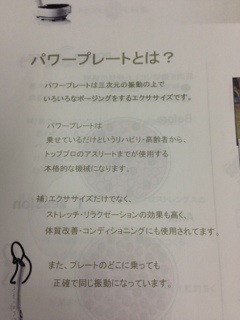 パワープレートとは？
パワープレートは三次元の振動の上で
いろいろなポージングをするエクササイズです。
パワープレートは
乗せているだけというリハビリ・高齢者から、
トッププロのアスリートまでが使用する
本格的な機械になります。
補）エクササイズだけでなく、
ストレッチ・リラクゼーションの効果も高く、
体質改善・コンディショニングにも使用されてます。
また、プレートのどこに乗っても
正確で同じ振動になっています。